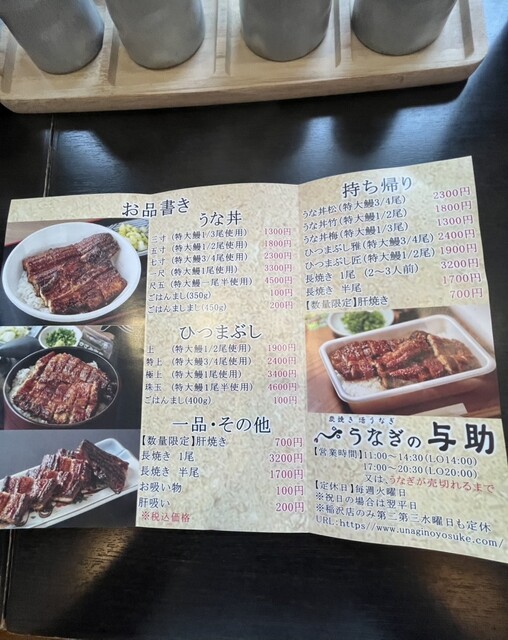 お品書き
うな丼
三寸(特大鰻1/3尾使用) 1300円
五寸(特大鰻1/2尾使用) 1800円
七寸(特大鰻3/4尾使用) 2300円
一尺(特大鰻1尾使用) 3300円
尺五(特大鰻一尾半使用) 4500円
ごはんまし(350g) 100円
ごはんましまし(450g) 200円
ひつまぶし
上 (特大鰻1/2尾使用) 1900円
特上 (特大鰻3/4尾使用) 2400円
極上 (特大鰻1尾使用) 3400円
珠玉 (特大鰻1尾半使用) 4600円
ごはんまし(400g) 100円
一品・その他
【数量限定】肝焼き 700円
長焼き 1尾 3200円
長焼き 半尾 1700円
お吸い物 100円
肝吸い 200円
※税込価格
持ち帰り
うな丼松(特大鰻3/4尾) 2300円
うな丼竹(特大鰻1/2尾) 1800円
うな丼梅(特大鰻1/3尾) 1300円
ひつまぶし雅(特大鰻3/4尾) 2400円
ひつまぶし匠(特大鰻1/2尾) 1900円
長焼き 1尾 (2〜3人前) 3200円
長焼き 半尾 1700円
【数量限定】肝焼き 700円
炭焼き うなぎ
うなぎの与助
【営業時間】11:00～14:30(LO14:00)
17:00～20:30(LO20:00)
又は、うなぎが売切れるまで
【定休日】毎週火曜日
※祝日の場合は翌平日
※稲沢店のみ第二第三水曜日も定休
URL:https//www.unaginoyosuke.com/